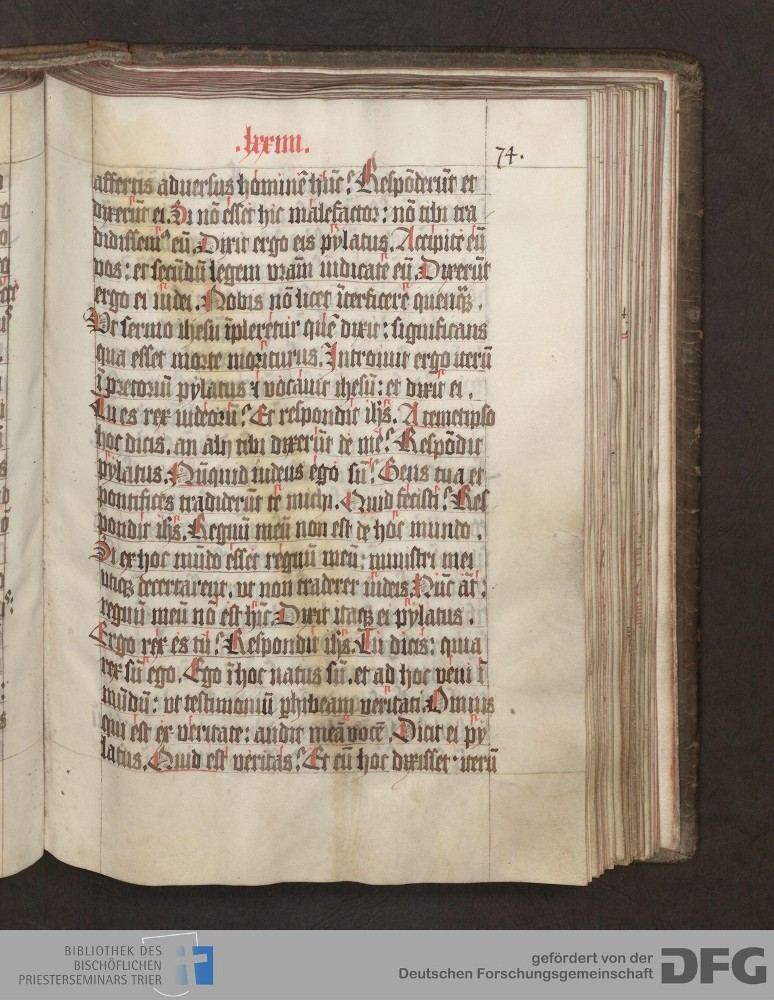 .lxxiiii.
74.
affertis adversus hominē hūc? Respōderūt et
dixerūt ei. Si nō esset hic malefactor: nō tibi tra
didissemꝰ eū. Dixit ergo eis pylatus. Accipite eū
vos: et secūdū legem vrām iudicate eū. Dixerūt
ergo ei iudei. Nobis nō licet īterficere quenqꝫ.
Vt sermo ihesu īpleretur quē dixit: significans
qua esset morte moriturus. Introiuit ergo iterū
ī pretoriū pylatus ⁊ vocauit ihesū: et dixit ei.
Tu es rex iudeorū? Et respondit ihs. A temetipso
hoc dicis. an alij tibi dixerūt de me? Respōdit
pylatus. Nūquid iudeus ego sū? Gens tua et
pontifices tradiderūt te michi. Quid fecisti? Res
pondit ihs. Regnū meū non est de hoc mundo.
Si ex hoc mūdo esset regnū meū: ministri mei
vtiqꝫ decertarent. vt non traderer iudeis. Nūc āt:
regnū meū nō est hīc. Dixit itaqꝫ ei pylatus.
Ergo rex es tu? Respondit ihs. Tu dicis: quia
rex sū ego. Ego ī hoc natus sū. et ad hoc veni ī
mūdū: vt testimoniū phibeam veritati. Omnis
qui est ex veritate: audit meā vocē. Dicit ei py
latus. Quid est veritas? Et cū hoc dixisset. iterū
BIBLIOTHEK DES
BISCHÖFLICHEN
PRIESTERSEMINARS TRIER
gefördert von der
Deutschen Forschungsgemeinschaft
DFG